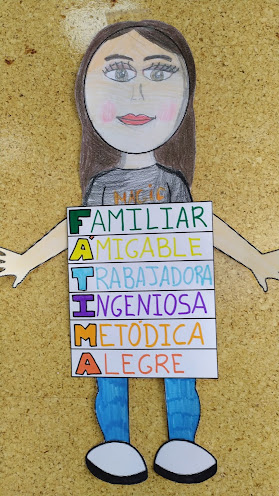 MAGIC
FAMILIAR
AMIGABLE
TRABAJADORA
INGENIOSA
METÓDICA
ALEGRE